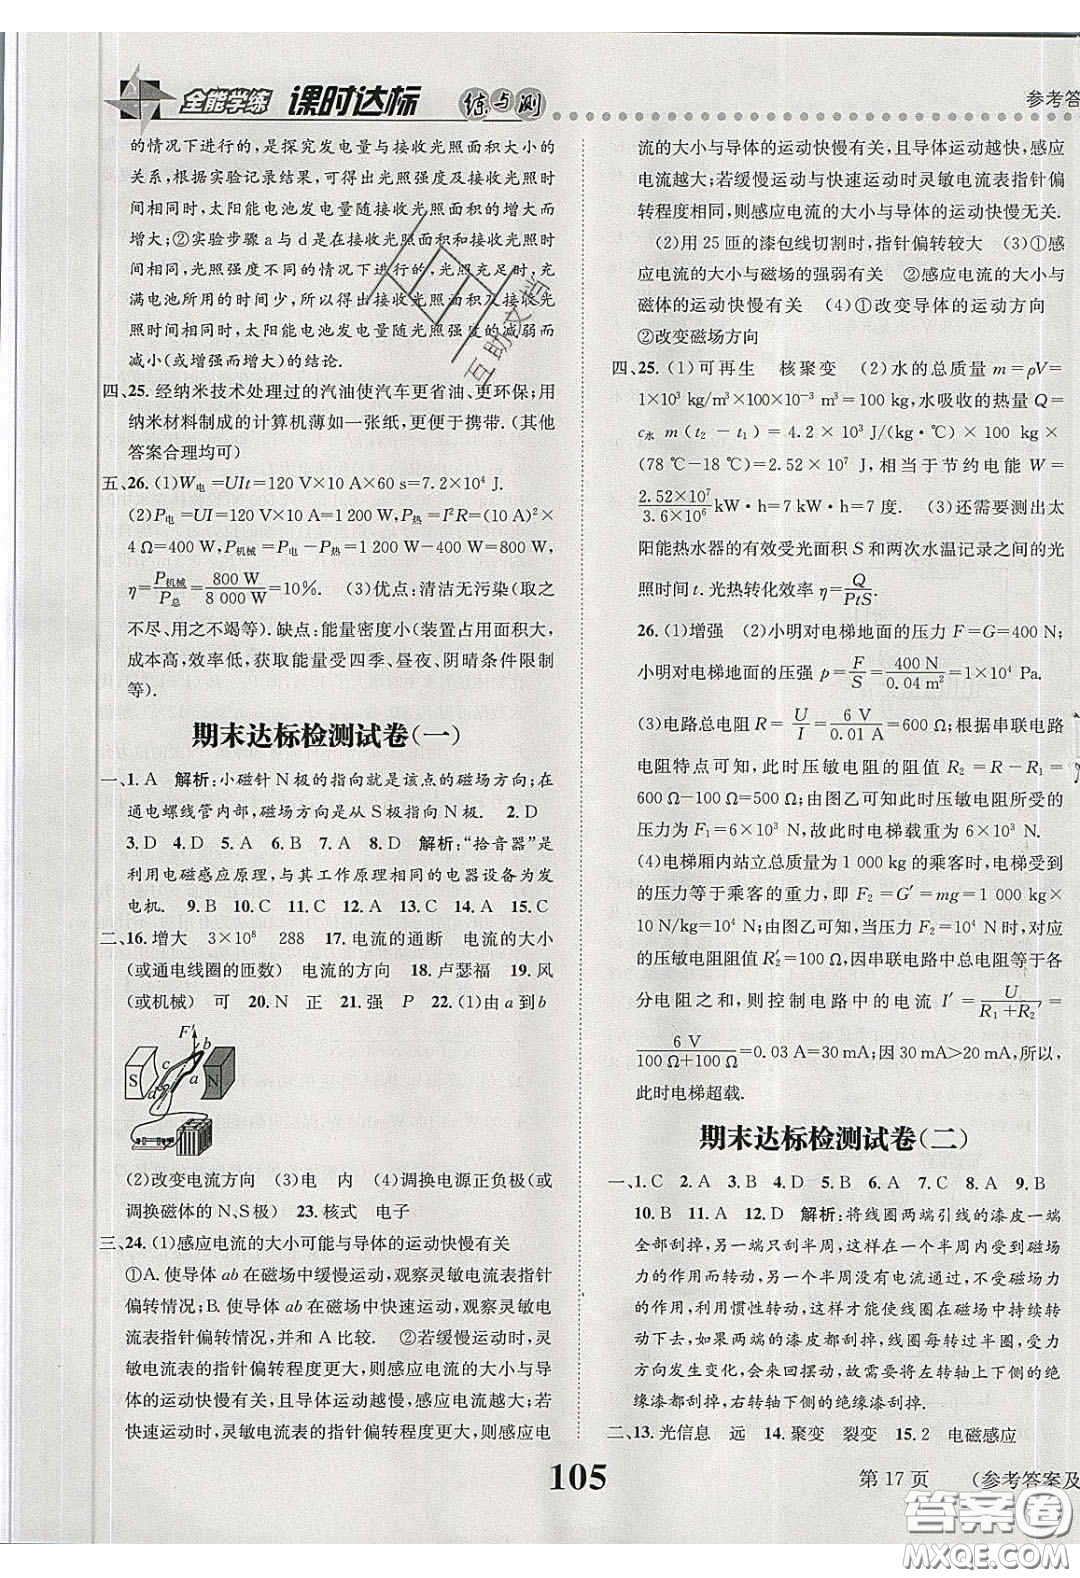 全能学练 课时达标 练与测
参考答
的情况下进行的,是探究发电量与接收光照面积大小的
关系,根据实验记录结果,可得出光照强度与接收光照时
间相同时,太阳能电池发电量随接收光照面积的增大而
增大;②实验步骤a与d是在接收光照面积与接收光照时
间相同,光照强度不同的情况下进行的,光照充足时,充
满电池所用的时间少,所以,接收光照面积与接收光照时
间相同时,太阳能电池发电量随光照强度的减弱而
减小(或增强而增大)的结论.
四、25. 经纳米技术处理过的汽油使汽车更省油、更环保;用
纳米材料制成的计算机薄如一张纸,更便于携带.(其他
答案合理均可)
五、26. (1)W电=UIt=120 V×10 A×60 s=7.2×10⁴ J.
(2)P电=UI=120 V×10 A=1 200 W,P热=I²R=(10 A)²×
4 Ω=400 W,P机械=P电-P热=1 200 W-400 W=800 W,
η=P机械/P总=800 W/8 000 W=10%. (3)优点:清洁无污染(取之
不尽、用之不竭等).缺点:能量密度小(装置占用面积大,
成本高,效率低,获取能量受四季、昼夜、阴晴条件限制
等).
期末达标检测试卷(一)
一、1. A 解析:小磁针N极的指向就是该点的磁场方向;在
通电螺线管内部,磁场方向是从S极指向N极. 2. D
3. D 4. D 5. A 6. A 7. A 8. D 解析:“拾音器”是
利用电磁感应原理,与其工作原理相同的电器设备为发
电机. 9. B 10. C 11. C 12. A 13. C 14. A 15. C
二、16. 增大 3×10⁸ 288 17. 电流的通断 电流的大小
(或通电线圈的匝数) 电流的方向 18. 卢瑟福 19. 风
(或机械) 可 20. N 正 21. 强 P 22. (1)由a到b
F′
b
c
S
a
N
d
a
(2)改变电流方向 (3)电 内 (4)调换电源正负极(或
调换磁体的N、S极) 23. 核式 电子
三、24. (1)感应电流的大小可能与导体的运动快慢有关
①A. 使导体ab在磁场中缓慢运动,观察灵敏电流表指针
偏转情况;B. 使导体ab在磁场中快速运动,观察灵敏电
流表指针偏转情况,并和A比较. ②若缓慢运动时,灵
敏电流表的指针偏转程度更大,则感应电流的大小与导
体的运动快慢有关,且导体运动越慢,感应电流越大;若
快速运动时,灵敏电流表的指针偏转程度更大,则感应电
流的大小与导体的运动快慢有关,且导体运动越快,感应
电流越大;若缓慢运动与快速运动时灵敏电流表指针偏
转程度相同,则感应电流的大小与导体的运动快慢无关.
(2)用25匝的漆包线切割时,指针偏转较大 (3)①感
应电流的大小与磁场的强弱有关 ②感应电流的大小与
磁体的运动快慢有关 (4)①改变导体的运动方向
②改变磁场方向
四、25. (1)可再生 核聚变 (2)水的总质量m=ρV=
1×10³ kg/m³×100×10⁻³ m³=100 kg,水吸收的热量Q=
c水 m(t₂-t₁)=4.2×10³ J/(kg·℃)×100 kg×
(78 ℃-18 ℃)=2.52×10⁷ J,相当于节约电能W=
2.52×10⁷/3.6×10⁶ kW·h=7 kW·h=7度. (3)还需要测出太
阳能热水器的有效受光面积S和两次水温记录之间的光
照时间t.光热转化效率η=Q/PtS.
26. (1)增强 (2)小明对电梯地面的压力F=G=400 N;
小明对电梯地面的压强p=F/S=400 N/0.04 m²=1×10⁴ Pa.
(3)电路总电阻R=U/I=6 V/0.01 A=600 Ω;根据串联电路
电阻特点可知,此时压敏电阻的阻值R₂=R-R₁=
600 Ω-100 Ω=500 Ω;由图乙可知此时压敏电阻所受的
压力为F₁=6×10³ N,故此时电梯载重为6×10³ N.
(4)电梯厢内站立总质量为1 000 kg的乘客时,电梯受到
的压力等于乘客的重力,即F₂=G′=mg=1 000 kg×
10 N/kg=10⁴ N;由图乙可知,当压力F₂=10⁴ N时,对应
的压敏电阻阻值R₂′=100 Ω,因串联电路中总电阻等于各
分电阻之和,则控制电路中的电流I′=U/R₁+R₂′=
6 V/100 Ω+100 Ω=0.03 A=30 mA;因30 mA>20 mA,所以,
此时电梯超载.
期末达标检测试卷(二)
一、1. C 2. A 3. B 4. D 5. B 6. A 7. C 8. A 9. B
10. B 11. A 12. D 解析:将线圈两端引线的漆皮一端
全部刮掉,另一端只刮半周,这样在一个半周内受到磁场
力的作用而转动,另一个半周没有电流通过,不受磁场力
的作用,利用惯性转动,这样才能使线圈在磁场中持续转
动下去;如果两端的漆皮都刮掉,线圈每转过半圈,受力
方向发生变化,会来回摆动,故需要将左转轴上下侧的绝
缘漆都刮掉,右转轴下侧的绝缘漆刮掉.
二、13. 光信息 远 14. 聚变 裂变 15. 2 电磁感应
105
第17页 (参考答案及
互助文档
答案圈
MXQE.COM